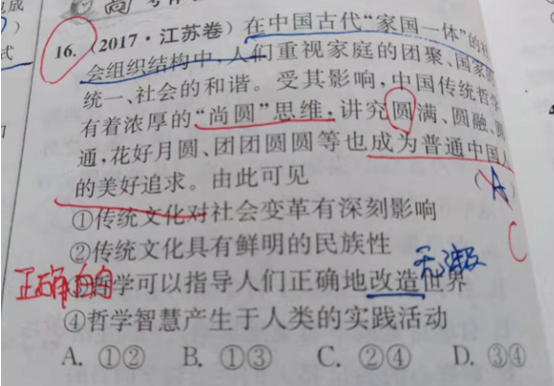 尚
16.（2017·江苏卷）在中国古代“家国一体”的社
会组织结构中，人们重视家庭的团聚、国家的
统一、社会的和谐。受其影响，中国传统哲学
有着浓厚的“尚圆”思维，讲究圆满、圆融、圆
通，花好月圆、团团圆圆等也成为普通中国人
的美好追求。由此可见（A）
C
①传统文化对社会变革有深刻影响
②传统文化具有鲜明的民族性
无涉及
正确的
③哲学可以指导人们正确地改造世界
④哲学智慧产生于人类的实践活动
A. ①② B. ①③ C. ②④ D. ③④